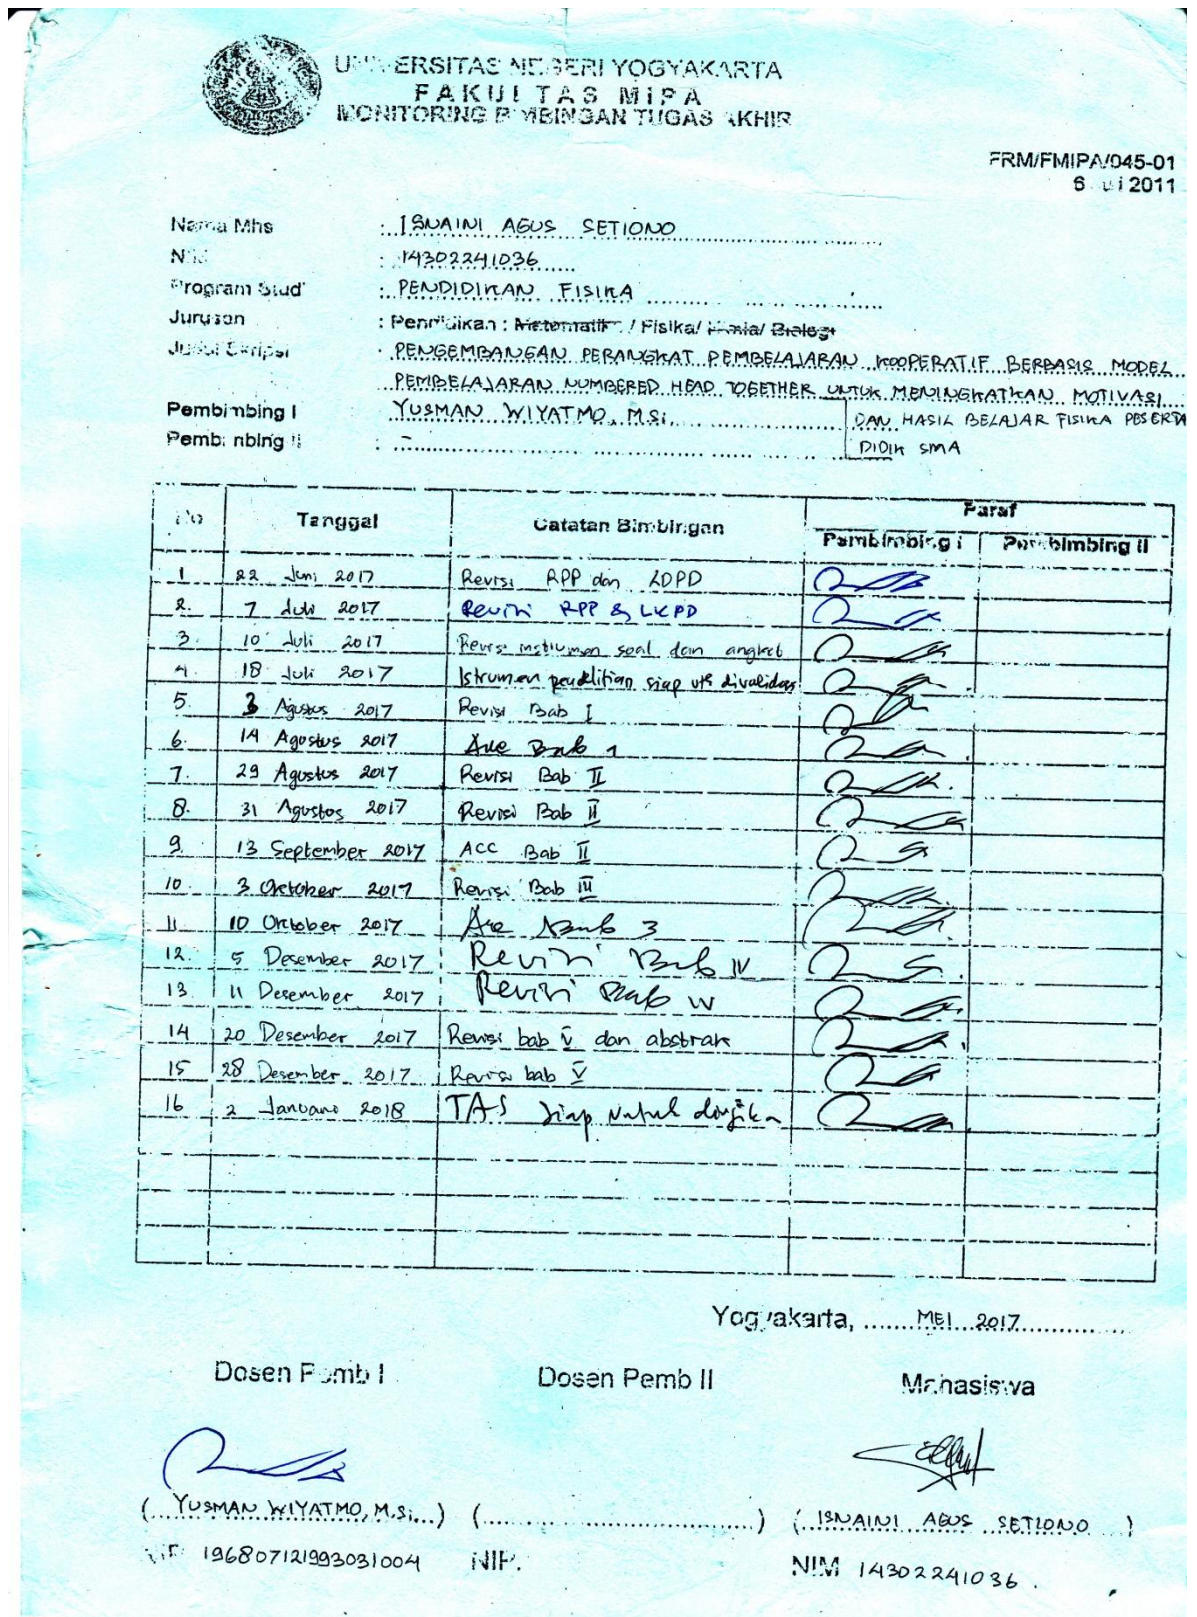 UNIVERSITAS NEGERI YOGYAKARTA
FAKULTAS MIPA
MONITORING BIMBINGAN TUGAS AKHIR
FRM/FMIPA/045-01
6 Juli 2011
Nama Mhs : ISNAINI AGUS SETIONO
NIM : 14302241036
Program Studi : PENDIDIKAN FISIKA
Jurusan : Pendidikan : Matematika / Fisika/ Kimia/ Biologi
Judul Skripsi : PENGEMBANGAN PERANGKAT PEMBELAJARAN KOOPERATIF BERBASIS MODEL
PEMBELAJARAN NUMBERED HEAD TOGETHER UNTUK MENINGKATKAN MOTIVASI
DAN HASIL BELAJAR FISIKA PESERTA
DIDIK SMA
Pembimbing I YUSMAN WIYATMO, M.Si.
Pembimbing II : -
No Tanggal Catatan Bimbingan Paraf
Pembimbing I Pembimbing II
1 22 Juni 2017 Revisi RPP dan LDPD
2. 7 Juli 2017 Revisi RPP & LKPD
3. 10 Juli 2017 Revisi instrumen soal dan angket
4. 18 Juli 2017 Istrumen penelitian siap utk divalidasi
5. 3 Agustus 2017 Revisi Bab I
6. 14 Agustus 2017 Acc Bab 1
7. 29 Agustus 2017 Revisi Bab II
8. 31 Agustus 2017 Revisi Bab II
9. 13 September 2017 ACC Bab II
10. 3 Oktober 2017 Revisi Bab III
11. 10 Oktober 2017 Acc Bab 3
12. 5 Desember 2017 Revisi Bab IV
13. 11 Desember 2017 Revisi Bab IV
14 20 Desember 2017 Revisi bab V dan abstrak
15 28 Desember 2017 Revisi bab V
16 2 Januari 2018 TAS siap untuk diujikan
Yogyakarta, MEI 2017
Dosen Pemb I Dosen Pemb II Mahasiswa
( YUSMAN WIYATMO, M.Si. ) ( ) ( ISNAINI AGUS SETIONO )
NIP. 196807121993031004 NIP. NIM 14302241036.